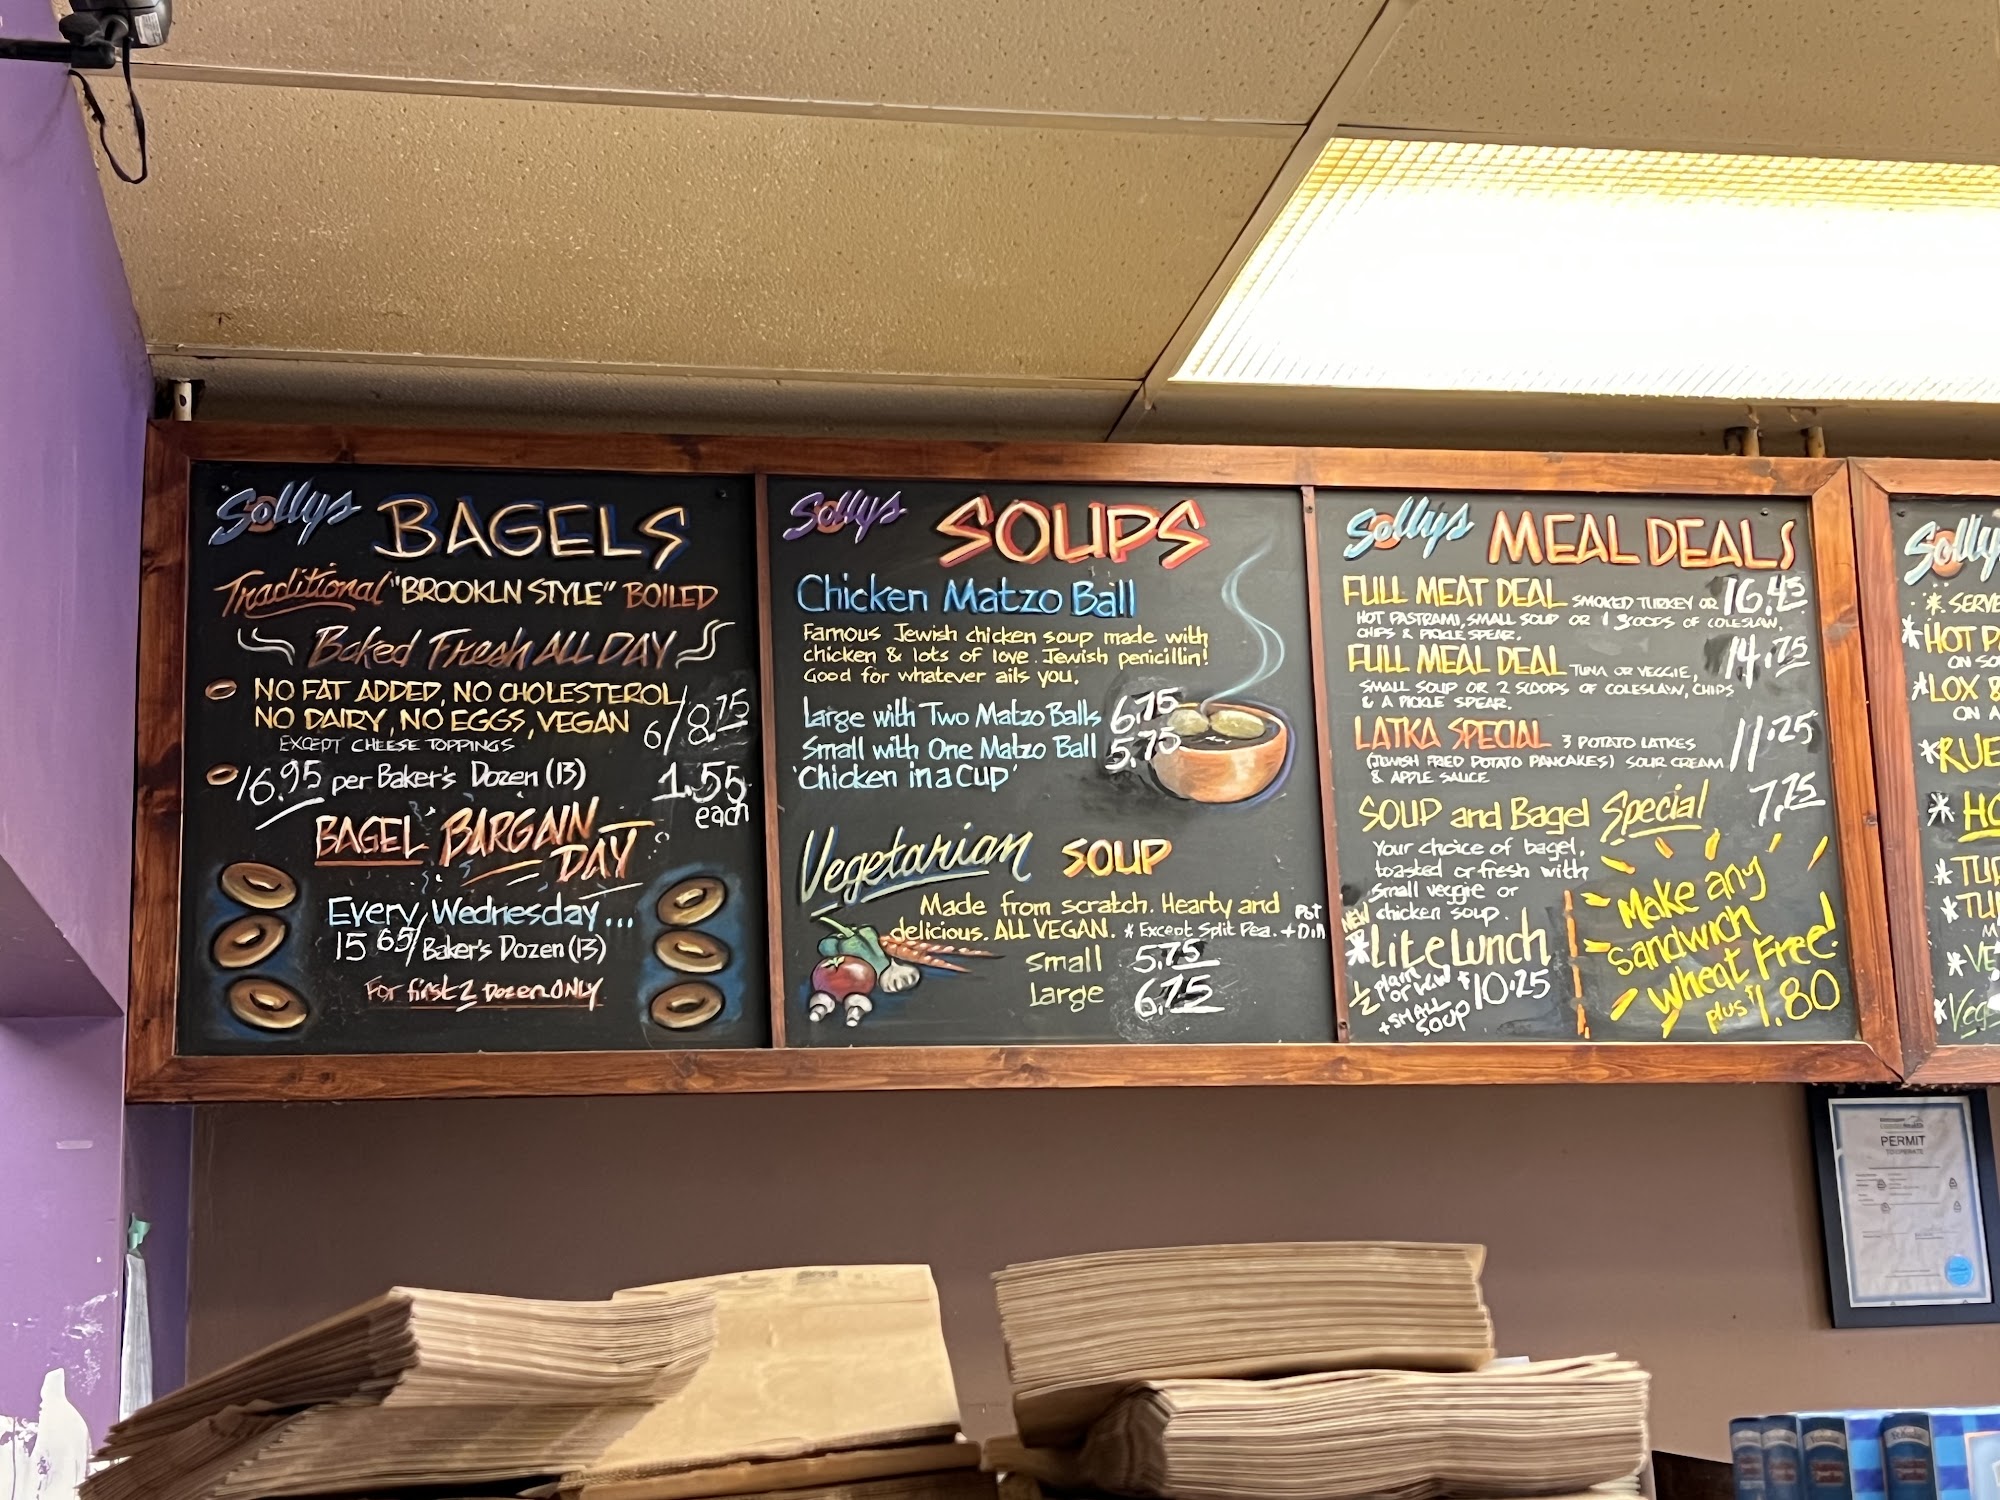 Sollys BAGELS
Traditional "BROOKLN STYLE" BOILED
Baked Fresh ALL DAY
NO FAT ADDED, NO CHOLESTEROL
NO DAIRY, NO EGGS, VEGAN
6/8.75
EXCEPT CHEESE TOPPINGS
16.95 per Baker's Dozen (13)
1.55
each
BAGEL BARGAIN
DAY
Every Wednesday...
15.65/Baker's Dozen (13)
For first 2 Dozen ONLY
Sollys SOUPS
Chicken Matzo Ball
Famous Jewish chicken soup made with
chicken & lots of love. Jewish penicillin!
Good for whatever ails you.
Large with Two Matzo Balls 6.75
Small with One Matzo Ball 5.75
'Chicken in a Cup'
Vegetarian SOUP
Made from scratch. Hearty and
delicious. ALL VEGAN. * Except Split Pea. + Pot Dill
Small 5.75
Large 6.75
Sollys MEAL DEALS
FULL MEAT DEAL SMOKED TURKEY OR 16.45
HOT PASTRAMI, SMALL SOUP OR 1 SCOOPS OF COLESLAW,
CHIPS & PICKLE SPEAR.
FULL MEAL DEAL TUNA OR VEGGIE, 14.75
SMALL SOUP OR 2 SCOOPS OF COLESLAW, CHIPS
& A PICKLE SPEAR.
LATKA SPECIAL 3 POTATO LATKES 11.25
(JEWISH FRIED POTATO PANCAKES) SOUR CREAM
& APPLE SAUCE
SOUP and Bagel Special 7.75
Your choice of bagel,
toasted or fresh with
small veggie or
chicken soup.
NEW
* Lite Lunch
1/2 plain
+ SMALL
SOUP
$10.25
Make any
sandwich
wheat Free!
plus $1.80
Solly
* SERVE
* HOT P
ON SO
* LOX &
ON A
* RUE
* HO
* TUR
* TU
* VE
* Veg
PERMIT
TO OPERATE